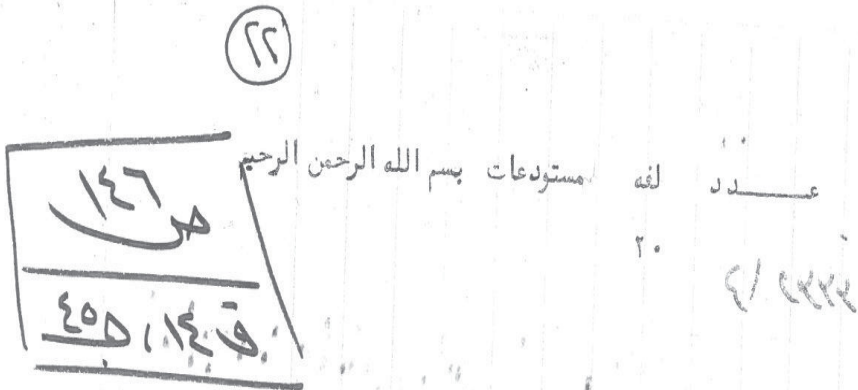 ٢٢
عـــــدد لفه مستودعات بسم الله الرحمن الرحيم
٢٠
ص ١٤٦
ق ١٤ ، ج ٤٥